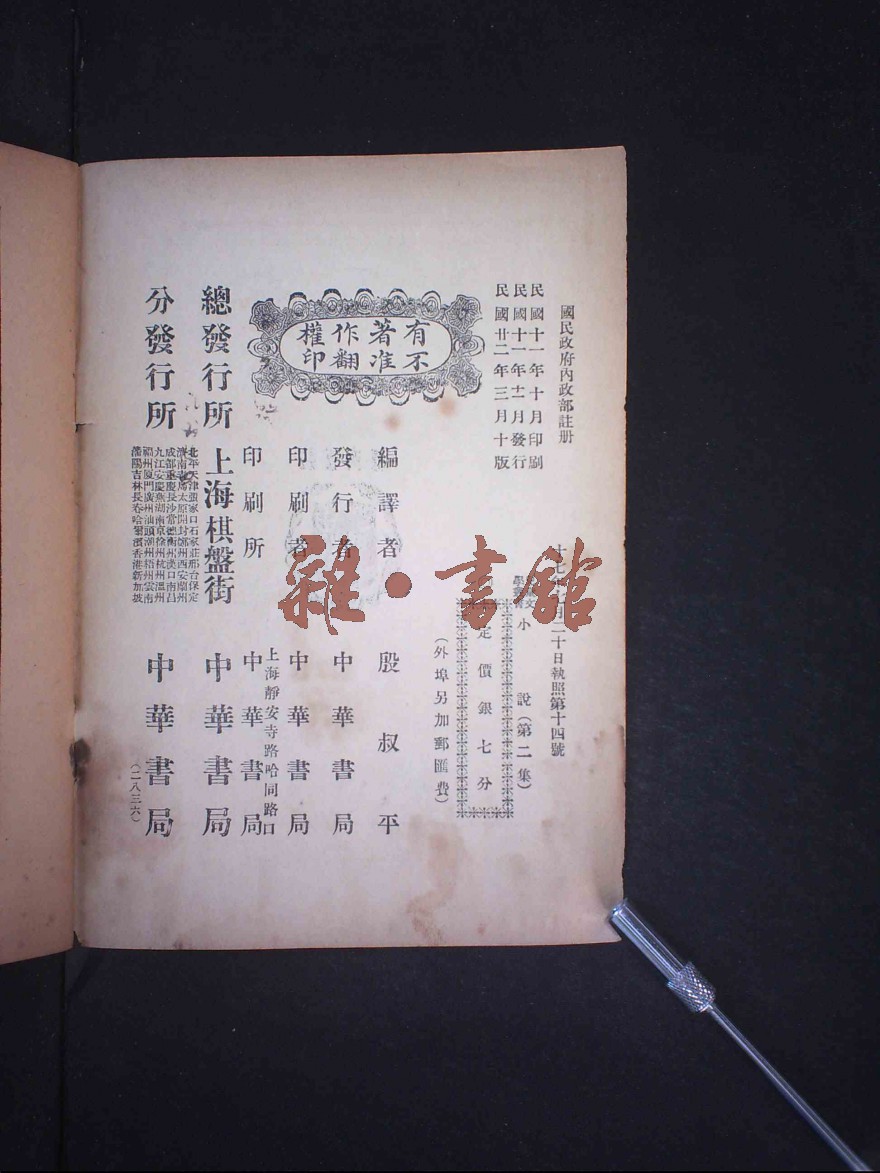 國民政府內政部註册
十七年 月二十日執照第十四號
民國十一年十月印刷
民國十一年十一月發行
民國廿二年三月十版
小說(第二集)
定價銀七分
(外埠另加郵匯費)
有著作權
不准翻印
編譯者 殷叔平
發行者 中華書局
印刷者 中華書局
上海靜安寺路哈同路口
印刷所 中華書局
總發行所 上海棋盤街 中華書局
分發行所
北平天津張家口石家莊邢台保定
濟南 太原開封鄭州西安蘭州
成都重慶長沙常德衡州漢口南昌
九江安慶蕪湖南京徐州杭州溫州
福州廈門廣州汕頭潮州梧州雲南
瀋陽吉林長春哈爾濱香港新加坡
中華書局
(二八三六)
雜·書館